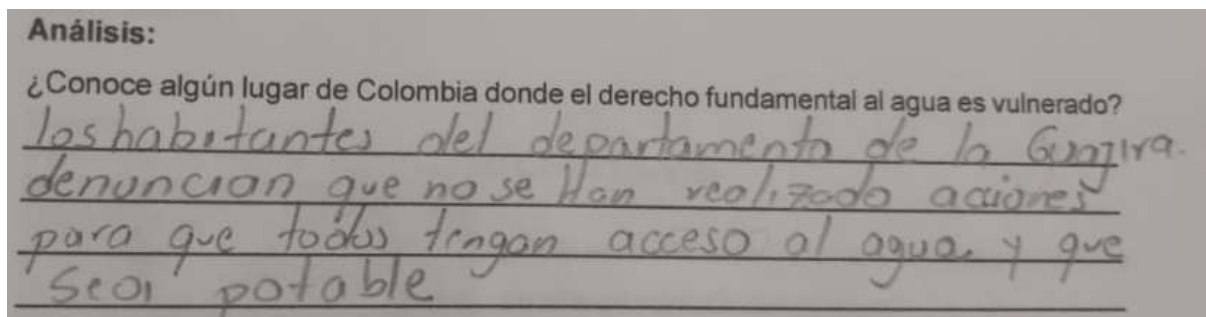 Análisis:
¿Conoce algún lugar de Colombia donde el derecho fundamental al agua es vulnerado?
los habitantes del departamento de la Guajira.
denuncian que no se Han realizado acciones
para que todos tengan acceso al agua y que
sea potable